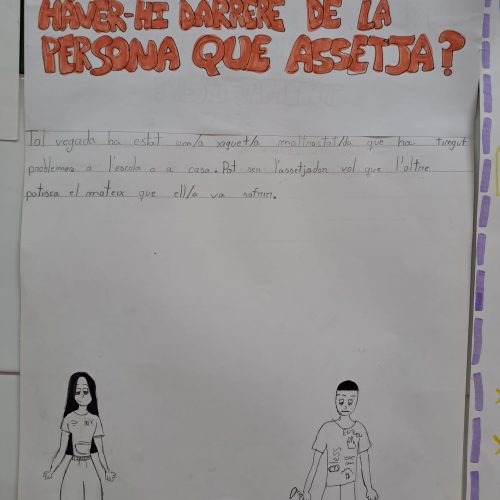 HAVER-HI DARRERE DE LA
PERSONA QUE ASSETJA?
Tal vegada ha estat un/a xiquet/a maltractat/da que ha tingut
problemes a l'escola o a casa. Pot ser l'assetjador vol que l'altre
patisca el mateix que ell/a va sofrir.
Bless